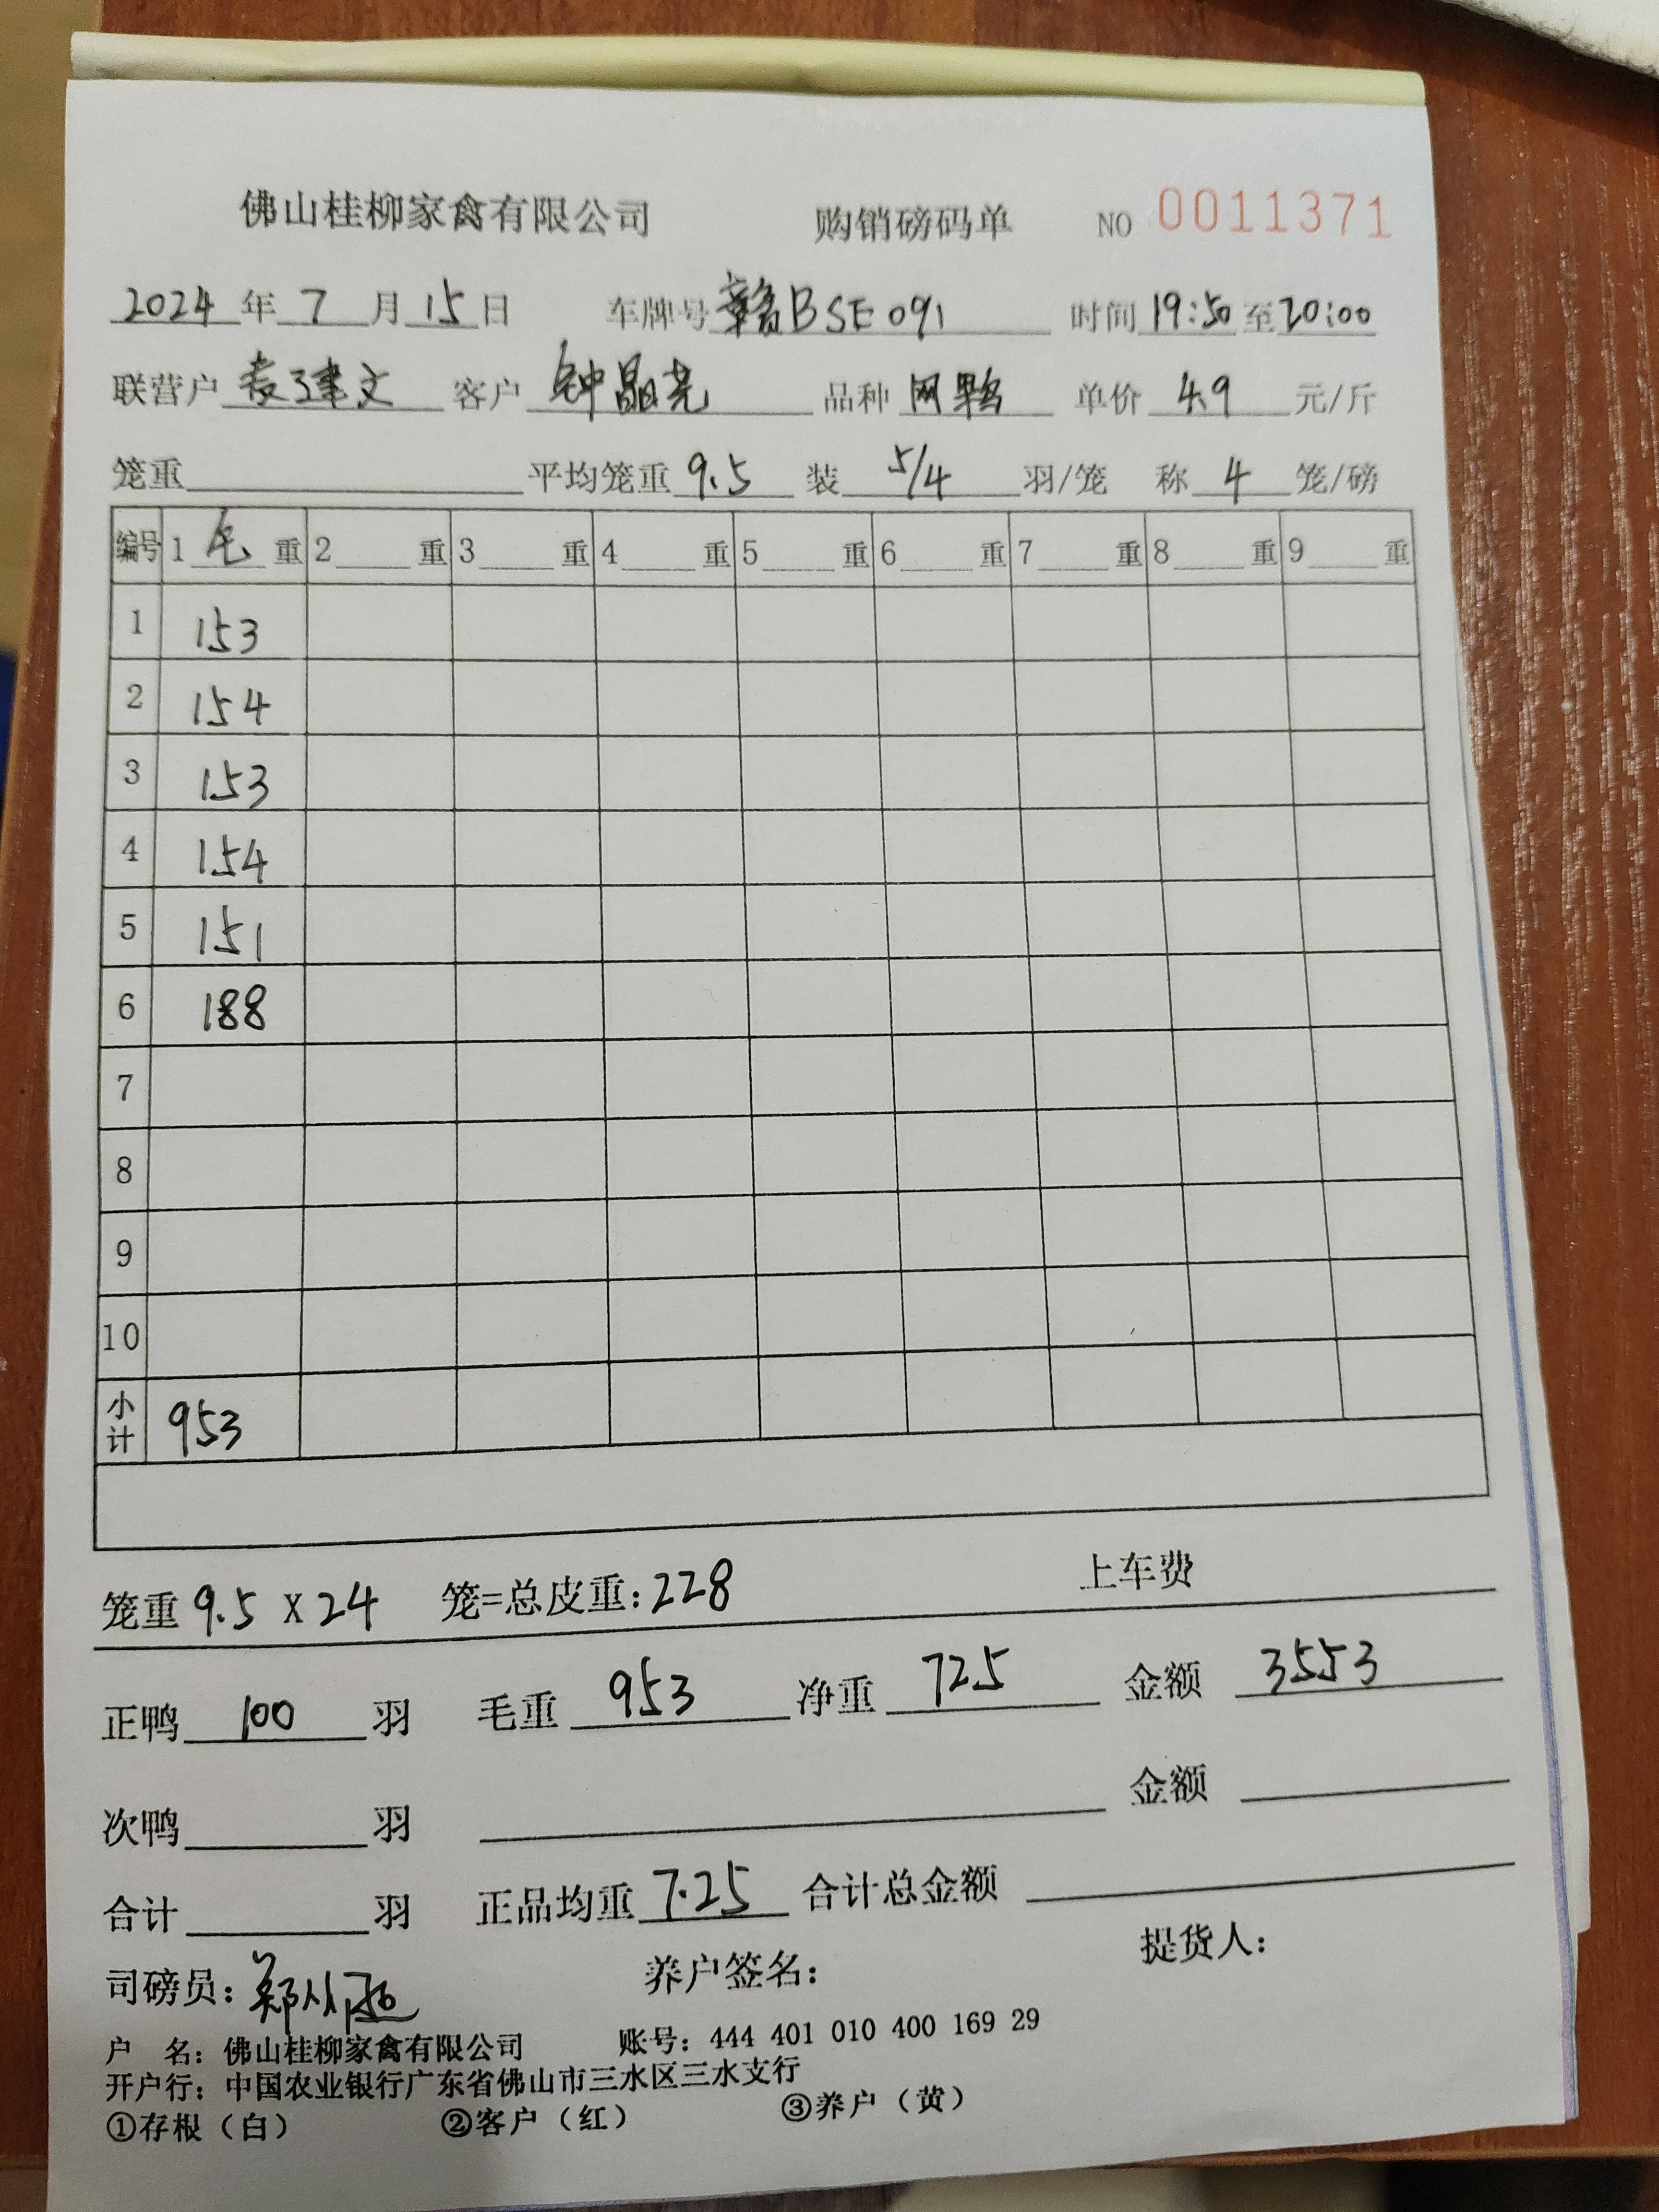 佛山桂柳家禽有限公司 购销磅码单 NO 0011371
2024 年 7 月 15 日 车牌号 赣BSE091 时间 19:50 至 20:00
联营户 袁建文 客户 钟晶亮 品种 网鸭 单价 4.9 元/斤
笼重 平均笼重 9.5 装 5/4 羽/笼 称 4 笼/磅
编号 1 毛 重 2 重 3 重 4 重 5 重 6 重 7 重 8 重 9 重
1 153
2 154
3 153
4 154
5 151
6 188
7
8
9
10
小计 953
笼重 9.5 x 24 笼=总皮重: 228 上车费
正鸭 100 羽 毛重 953 净重 725 金额 3553
次鸭 羽 金额
合计 羽 正品均重 7.25 合计总金额
司磅员: 郑 养户签名: 提货人:
户 名: 佛山桂柳家禽有限公司 账号: 444 401 010 400 169 29
开户行: 中国农业银行广东省佛山市三水区三水支行
①存根（白） ②客户（红） ③养户（黄）